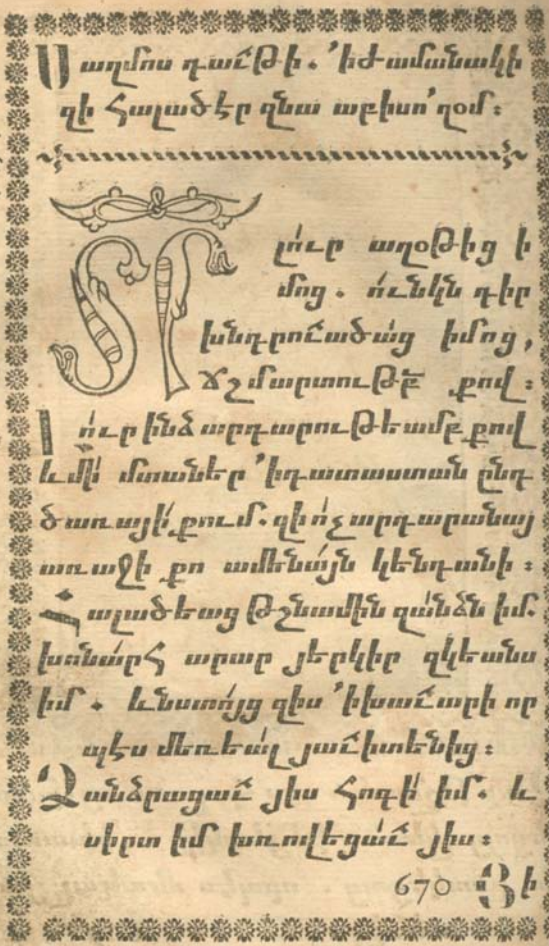 Սաղմոս դաւ՟թի. ՛ի ժամանակի
զի հալածէր զնա աբիսո՛ղօմ։
ՏՐ լո՛ւր աղօթից ի
մոց. ո՛ւնկն դիր
խնդրուածա՛ց իմոց,
ճշմարտութբ՟ քով։
Լո՛ւր ինձ արդարութեամբ քով
և մի՛ մտաներ ՛ի դատաստան ընդ
ծառայի՛ քում. զի ո՛չ արդարանայ
առաջի քո ամենա՛յն կենդանի։
Հալածեաց թշնամին զա՛նձն իմ.
խոնա՛րհ արար յերկիր զկեանս
իմ. և նստո՛յց զիս ՛ի խաւարի որ
պէս մեռեա՛լ յաւիտենից։
Ձանձրացաւ յիս հոգի՛ իմ. և
սիրտ իմ խռովեցա՛ւ յիս։
670 Յի